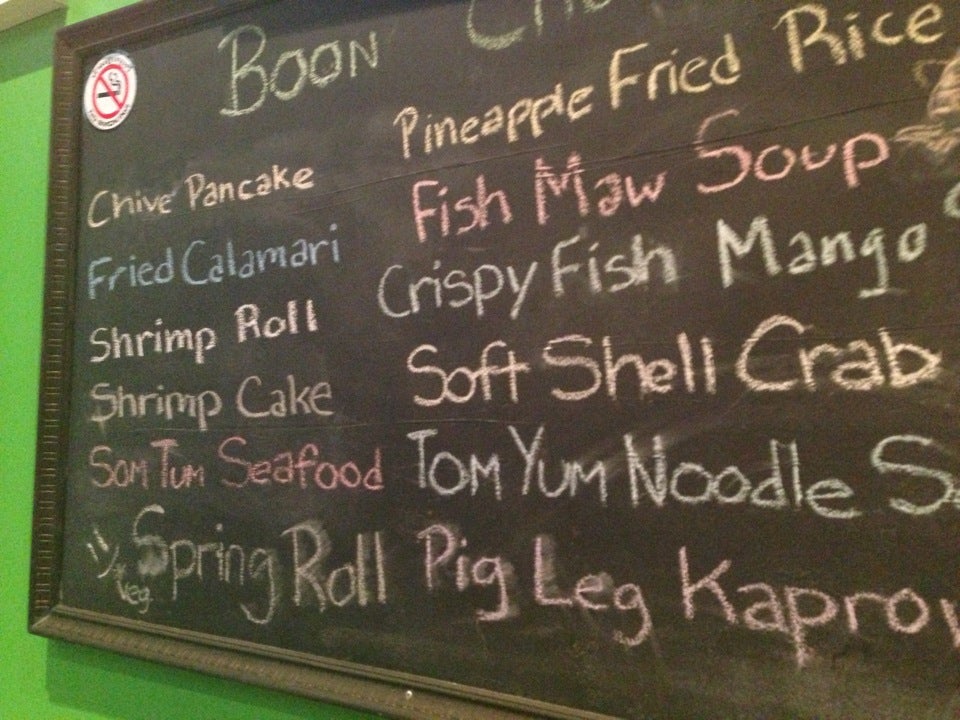 Boon
Chive Pancake
Fried Calamari
Shrimp Roll
Shrimp Cake
Som Tum Seafood
Veg. Spring Roll
Pineapple Fried Rice
Fish Maw Soup
Crispy Fish Mango
Soft Shell Crab
Tom Yum Noodle
Pig Leg Kaprow